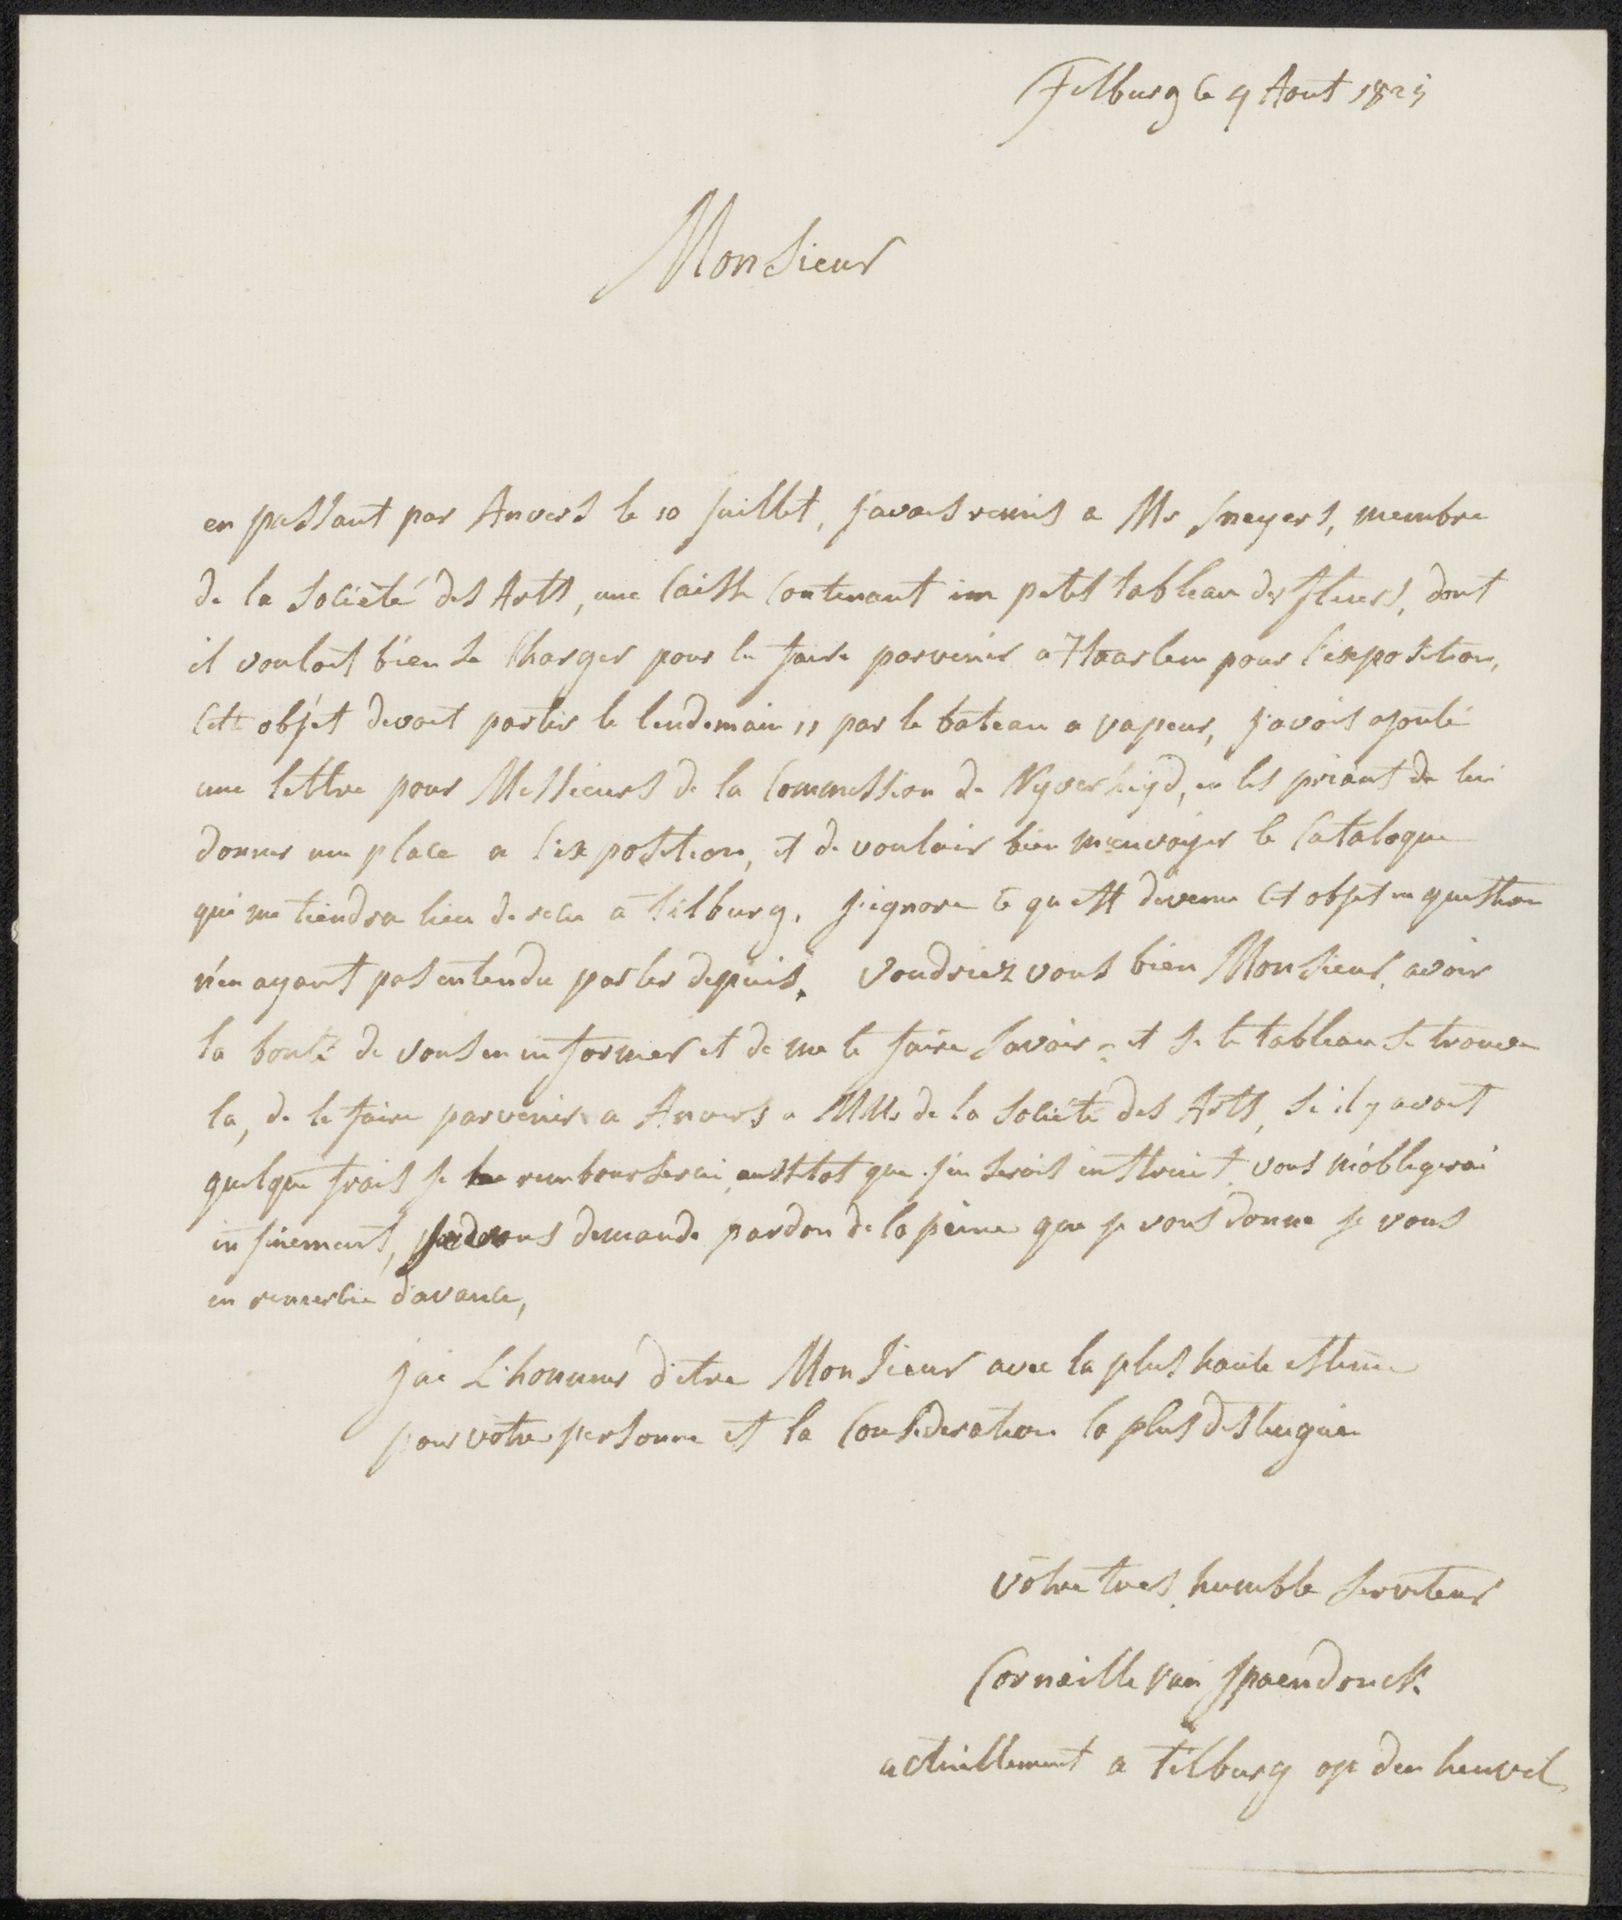 Tilburg le 9 Aout 1825
Monsieur
en passant par Anvers le 10 juillet, j'avais remis a Mr Sneyers, membre
de la societé des Arts, une Caisse Contenant un petit tableau des fleurs, dont
il vouloit bien se Charger pour le faire parvenir a Haarlem pour l'exposition,
Cett objet devoit partir le lendemain 11 par le bateau a vapeur, j'avois ajouté
une lettre pour Messieurs de la Commission de Nyverheyd, en les priant de lui
donner une place a l'exposition, et de vouloir bien m'envoyer le Catalogue
qui me tiendra lieu de recu a Tilburg. j'ignore ce qu'est devenu Cet objet en question
n'en ayant pas entendu parler depuis. Voudriez vous bien Monsieur, avoir
la bonté de vous en informer et de me le faire savoir, et si le tableau se trouve
la, de le faire parvenir a Anvers a MMs de la Societé des Arts, si il y avoit
quelque frais je le rembourserai aussitot que j'en serois instruit, vous m'obligerai
infinement, vous demande pardon de la peine que je vous donne je vous
en remercie d'avance,
j'ai L'honneur d'etre Monsieur avec la plus haute estime
pour votre personne et la Consideration la plus distinguée
votre tres humble serviteur
Corneille van Spaendonck
actuellement a Tilburg op den heuvel